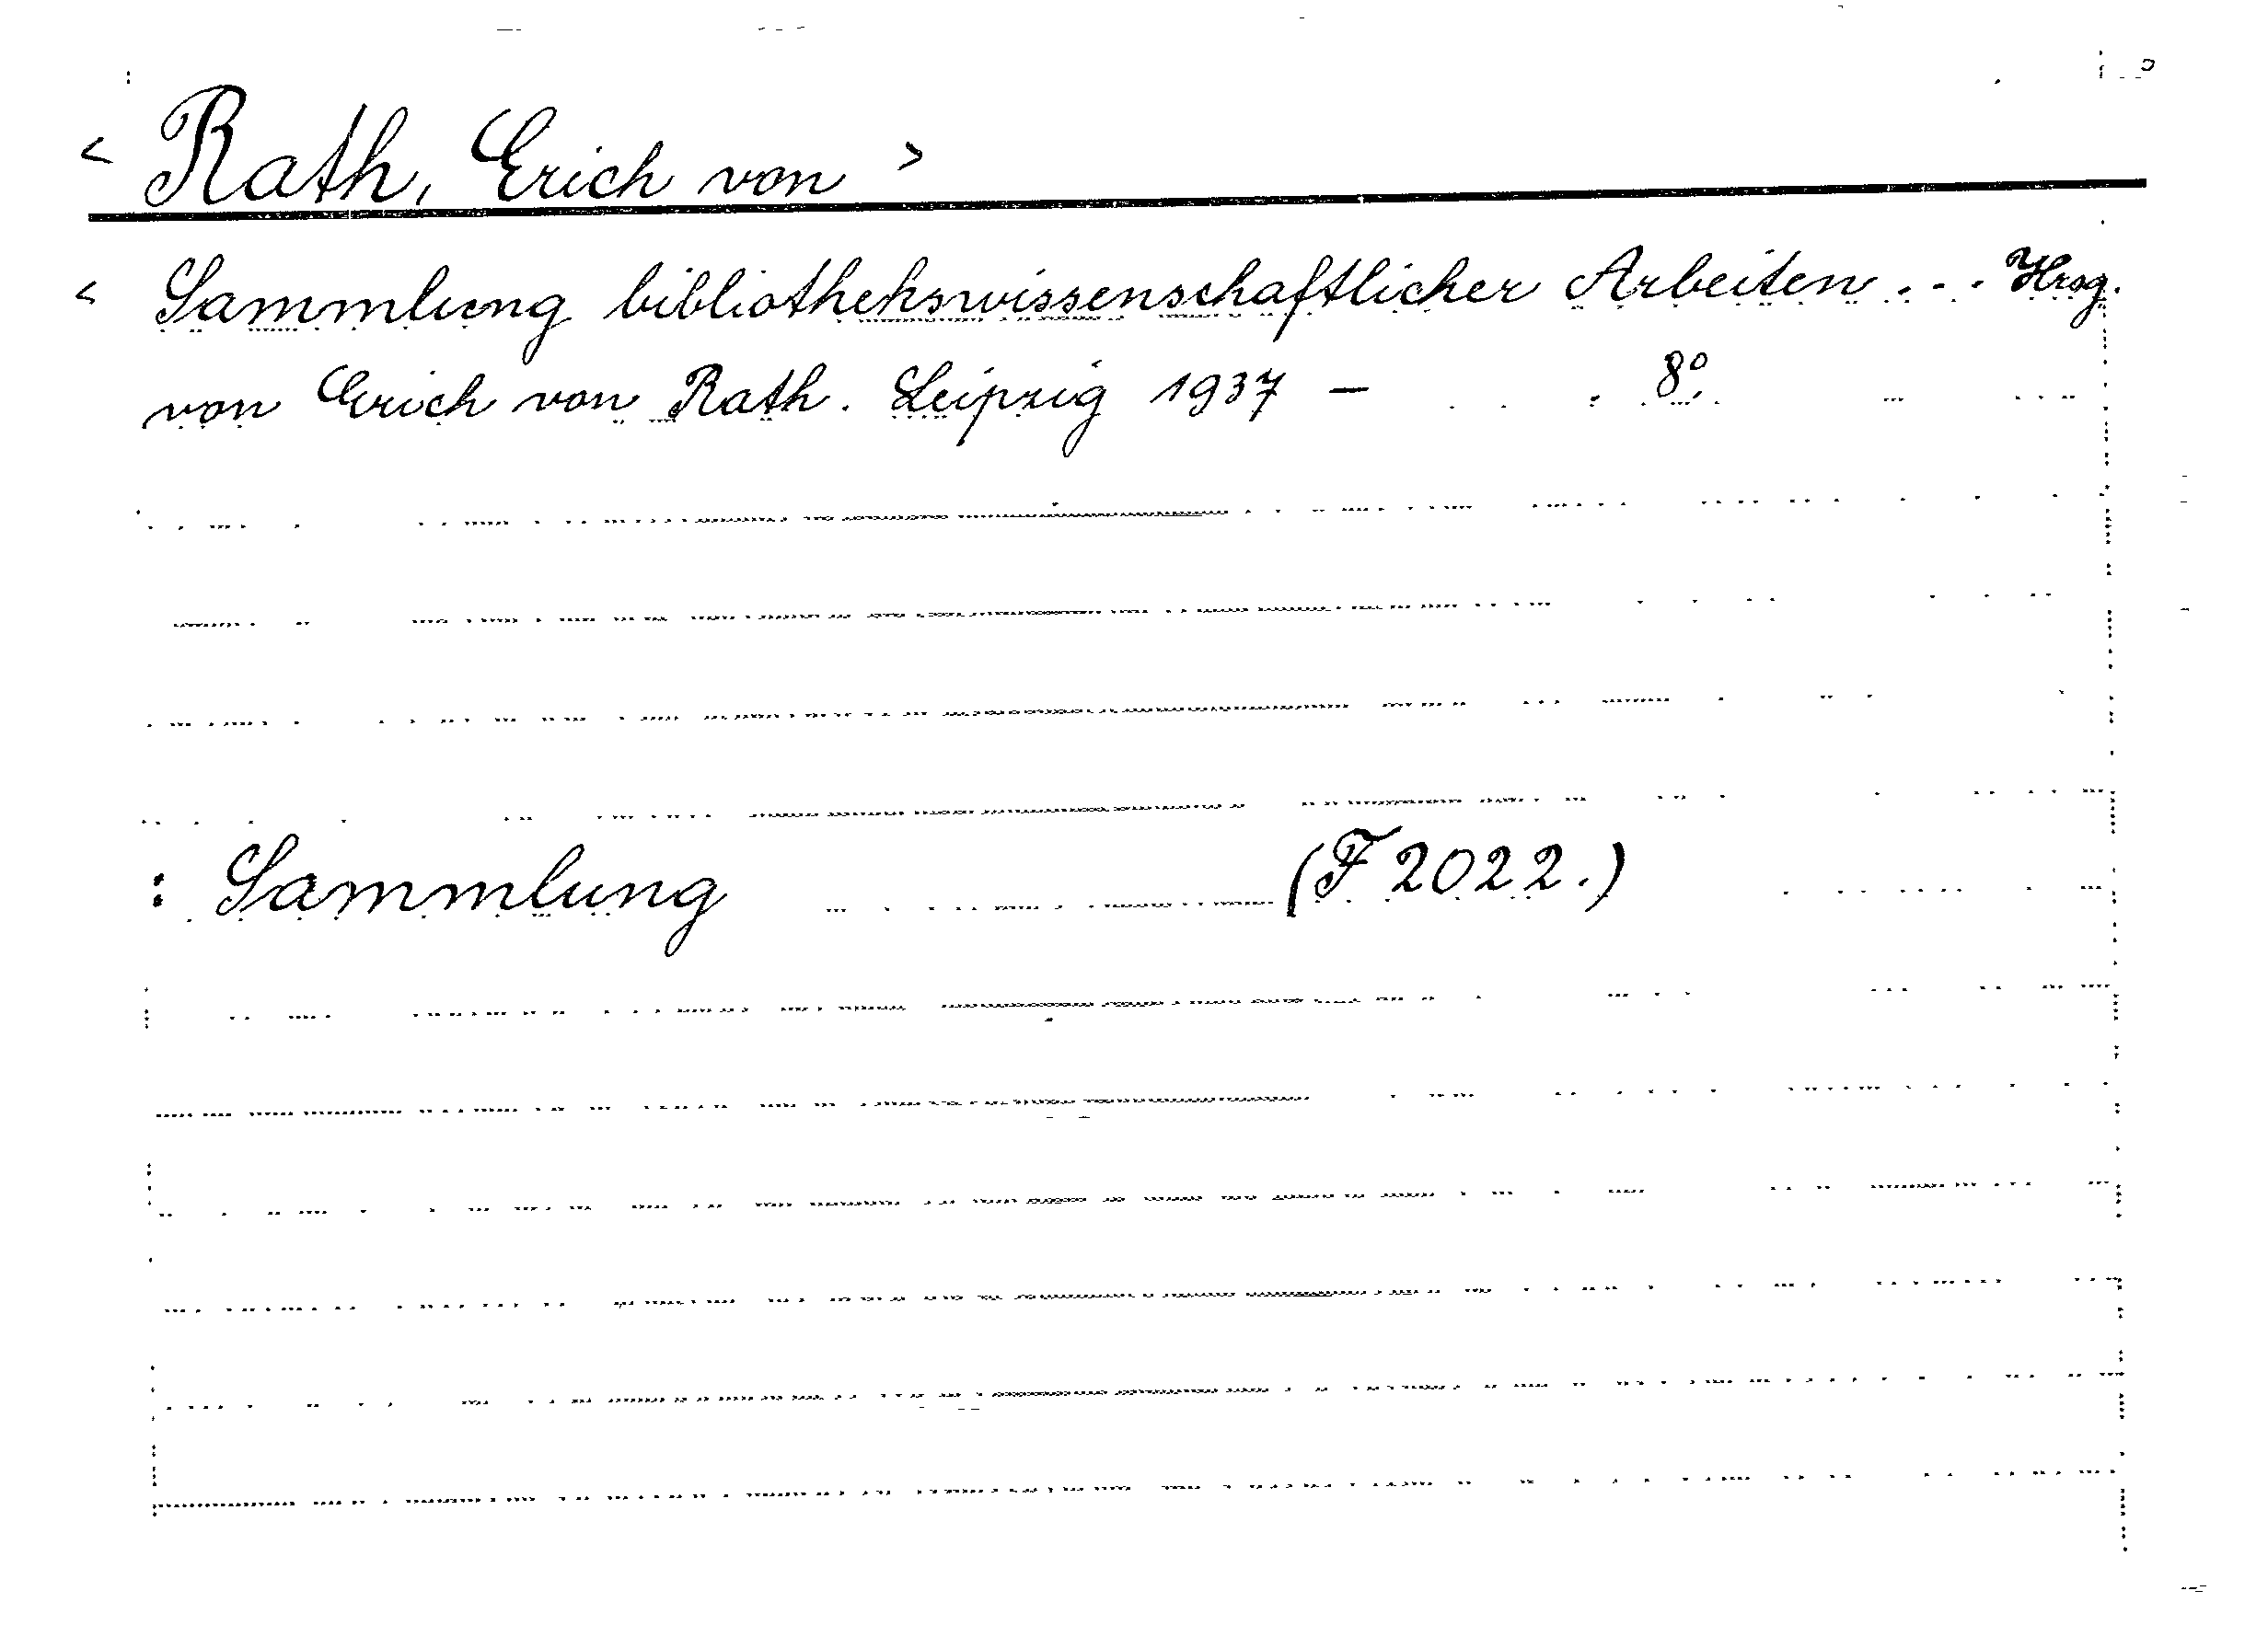 < Rath, Erich von >
< Sammlung bibliothekswissenschaftlicher Arbeiten ... Hrsg.
von Erich von Rath. Leipzig 1937 — 8°.
: Sammlung (F 2022.)